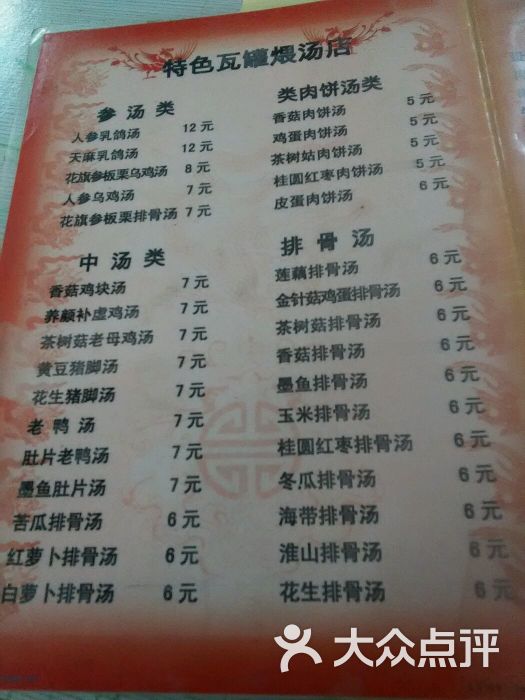 特色瓦罐煨汤店
参汤类
人参乳鸽汤 12元
天麻乳鸽汤 12元
花旗参板栗乌鸡汤 8元
人参乌鸡汤 7元
花旗参板栗排骨汤 7元
中汤类
香菇鸡块汤 7元
养颜补虚鸡汤 7元
茶树菇老母鸡汤 7元
黄豆猪脚汤 7元
花生猪脚汤 7元
老鸭汤 7元
肚片老鸭汤 7元
墨鱼肚片汤 7元
苦瓜排骨汤 6元
红萝卜排骨汤 6元
白萝卜排骨汤 6元
类肉饼汤类
香菇肉饼汤 5元
鸡蛋肉饼汤 5元
茶树姑肉饼汤 5元
桂圆红枣肉饼汤 5元
皮蛋肉饼汤 6元
排骨汤
莲藕排骨汤 6元
金针菇鸡蛋排骨汤 6元
茶树菇排骨汤 6元
香菇排骨汤 6元
墨鱼排骨汤 6元
玉米排骨汤 6元
桂圆红枣排骨汤 6元
冬瓜排骨汤 6元
海带排骨汤 6元
淮山排骨汤 6元
花生排骨汤 6元
大众点评